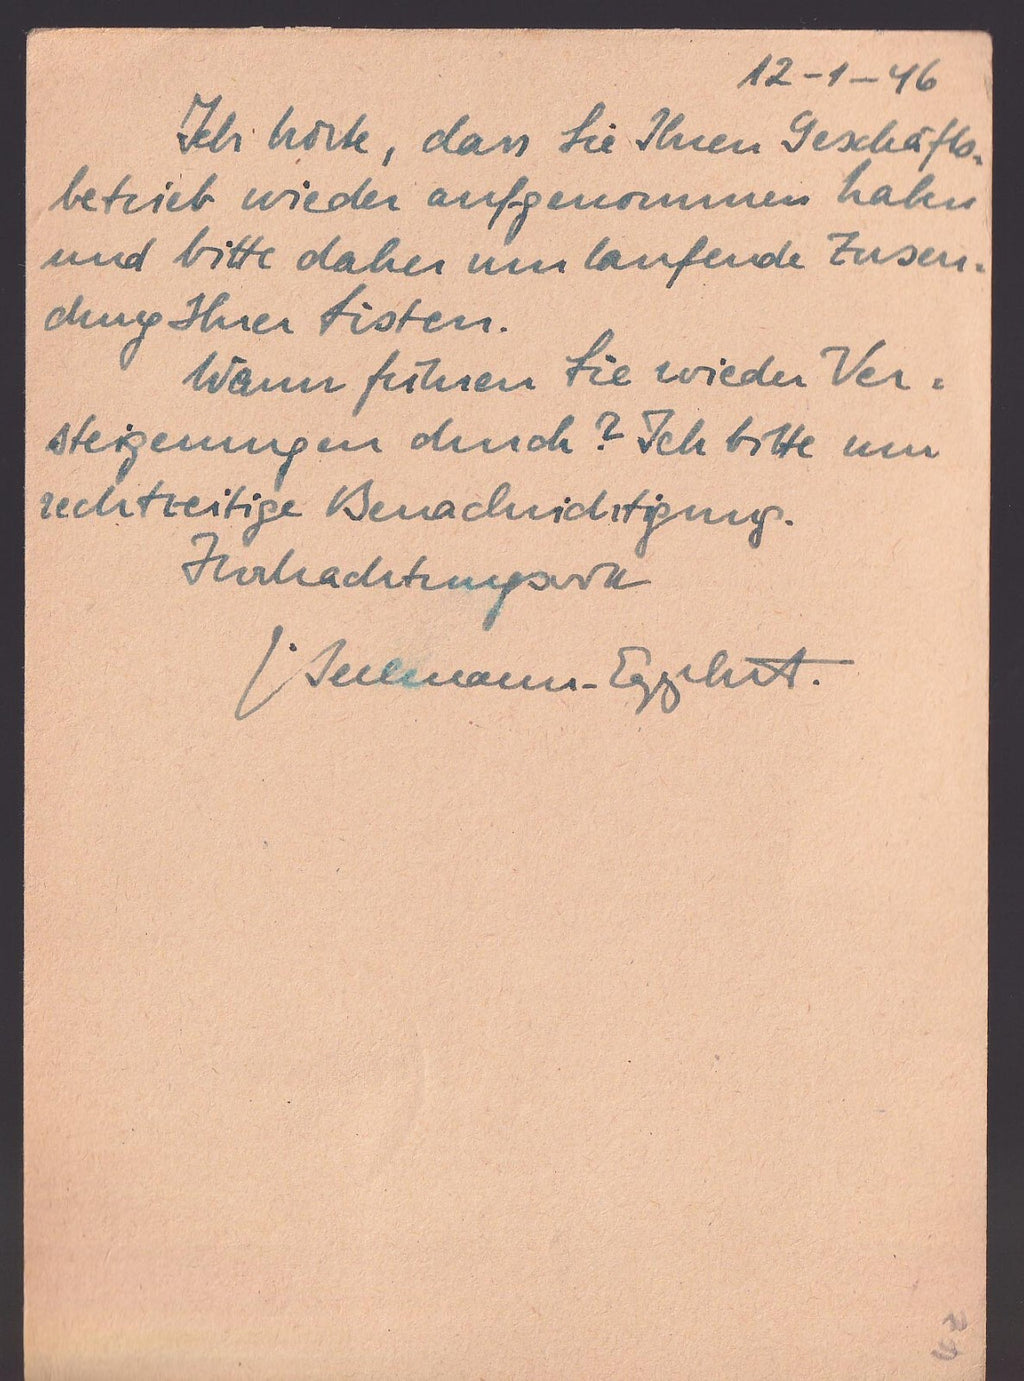 12-1-46
Ich hörte, dass Sie Ihren Geschäfts-
betrieb wieder aufgenommen haben
und bitte daher um laufende Zusen-
dung Ihrer Listen.
Wann führen Sie wieder Ver-
steigerungen durch? Ich bitte um
rechtzeitige Benachrichtigung.
Hochachtungsvoll